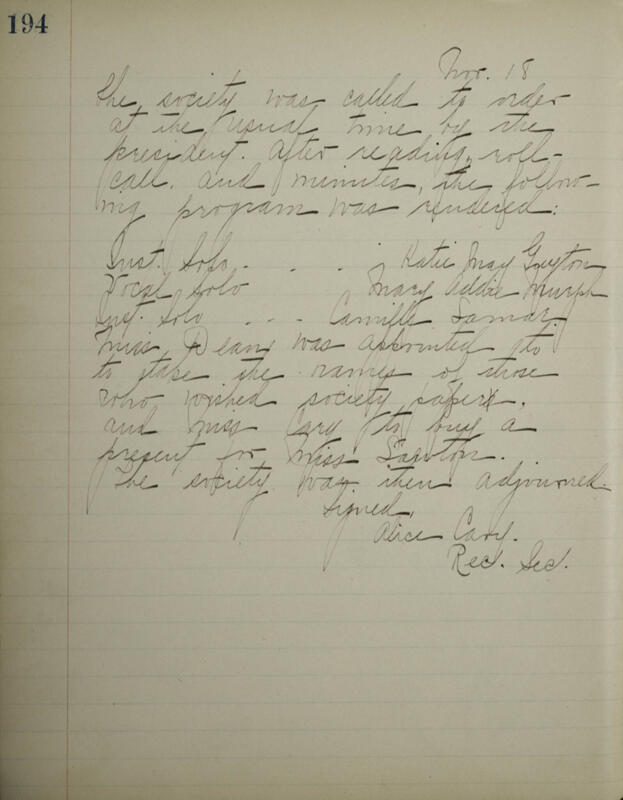 194
Nov. 18
The society was called to order
at the usual time by the
president. After reading, roll-
call, and minutes, the follow-
ing program was rendered:
Inst. Solo . . . Katie May Guyton
Vocal Solo Mary Addie Murph
Inst. Solo . . . Camille Samar.
Miss Deany was appointed to
to take the names of those
who wished society papers,
and Miss Cary to buy a
present for Miss Lawton.
The society was then adjourned.
Signed,
Alice Cary.
Rec. Sec.